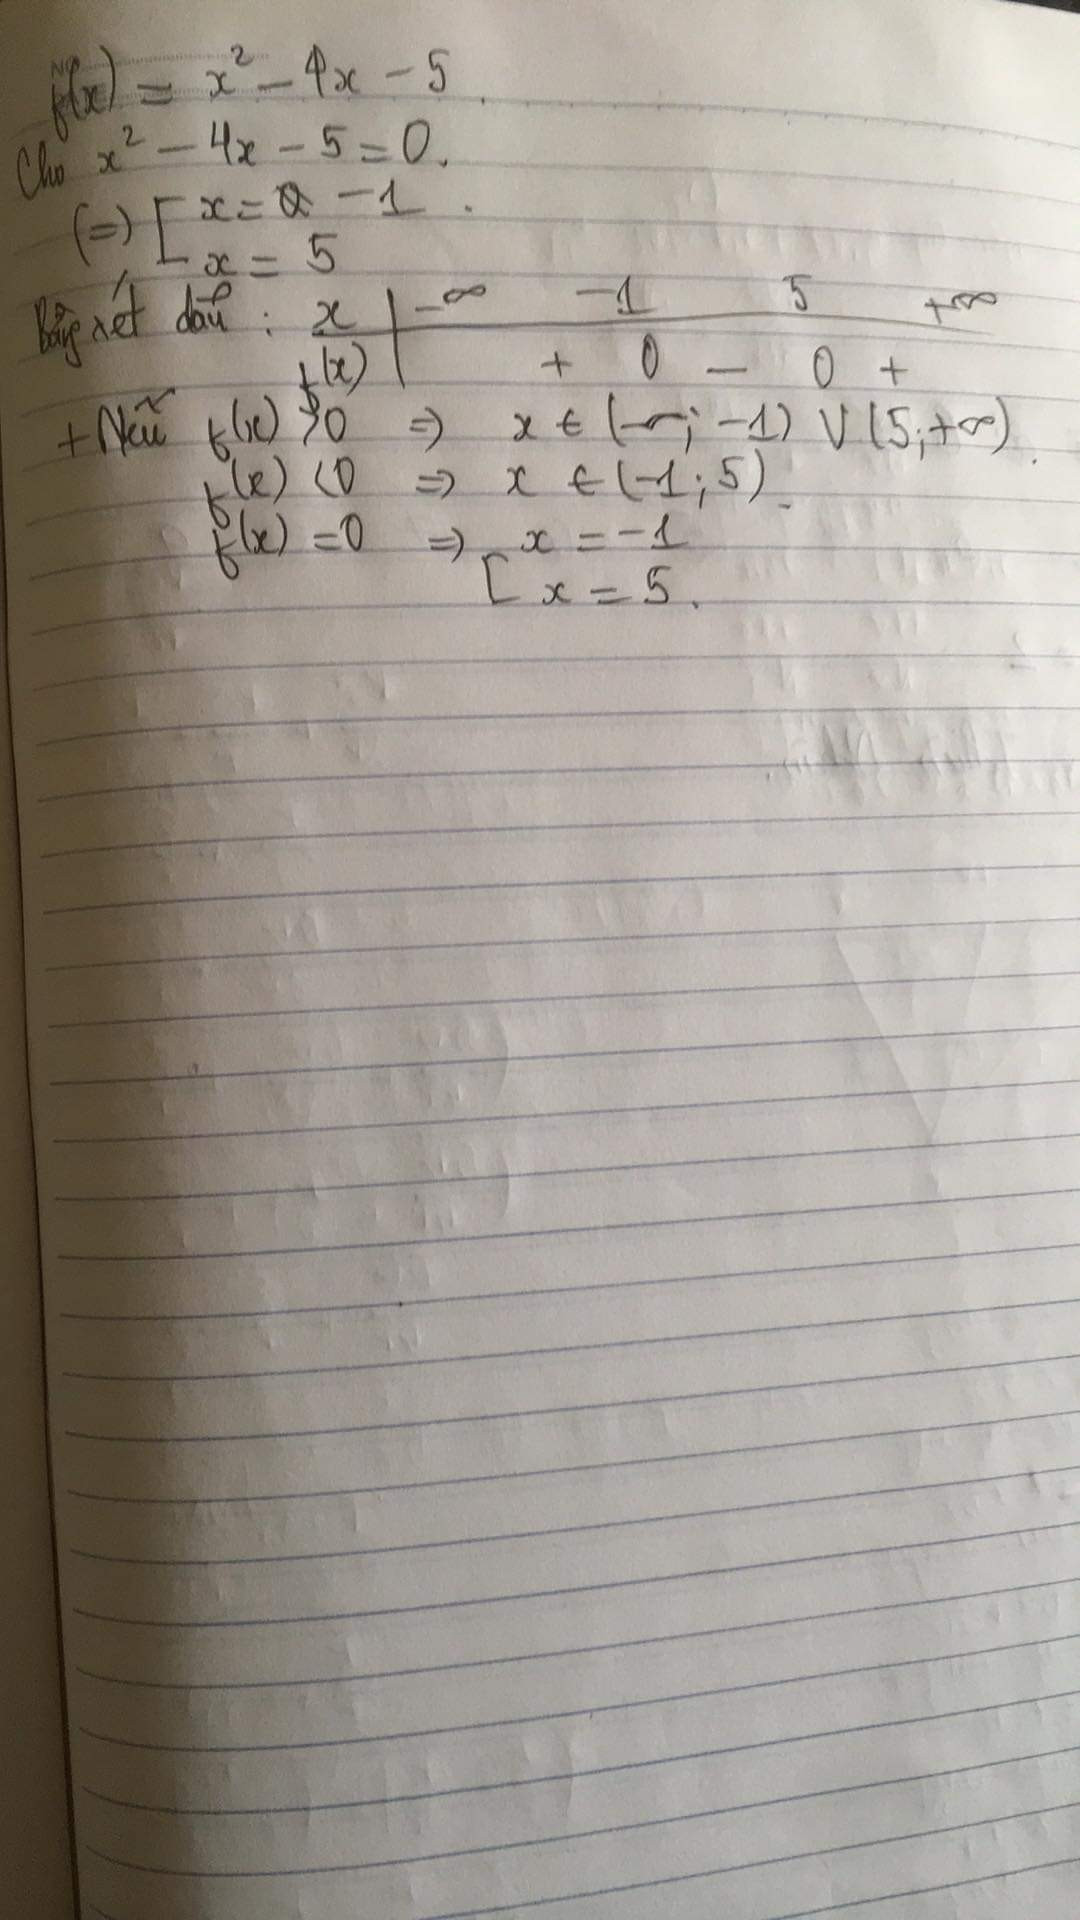 f(x) = x² − 4x − 5
Cho x² − 4x − 5 = 0.
(=) [ x = −1.
x = 5
Bảng xét dấu : x | −∞ −1 5 +∞
f(x) | + 0 − 0 +
+ Nếu f(x) > 0 => x ∈ (−∞; −1) ∪ (5; +∞).
f(x) < 0 => x ∈ (−1; 5).
f(x) = 0 => x = −1
[ x = 5.